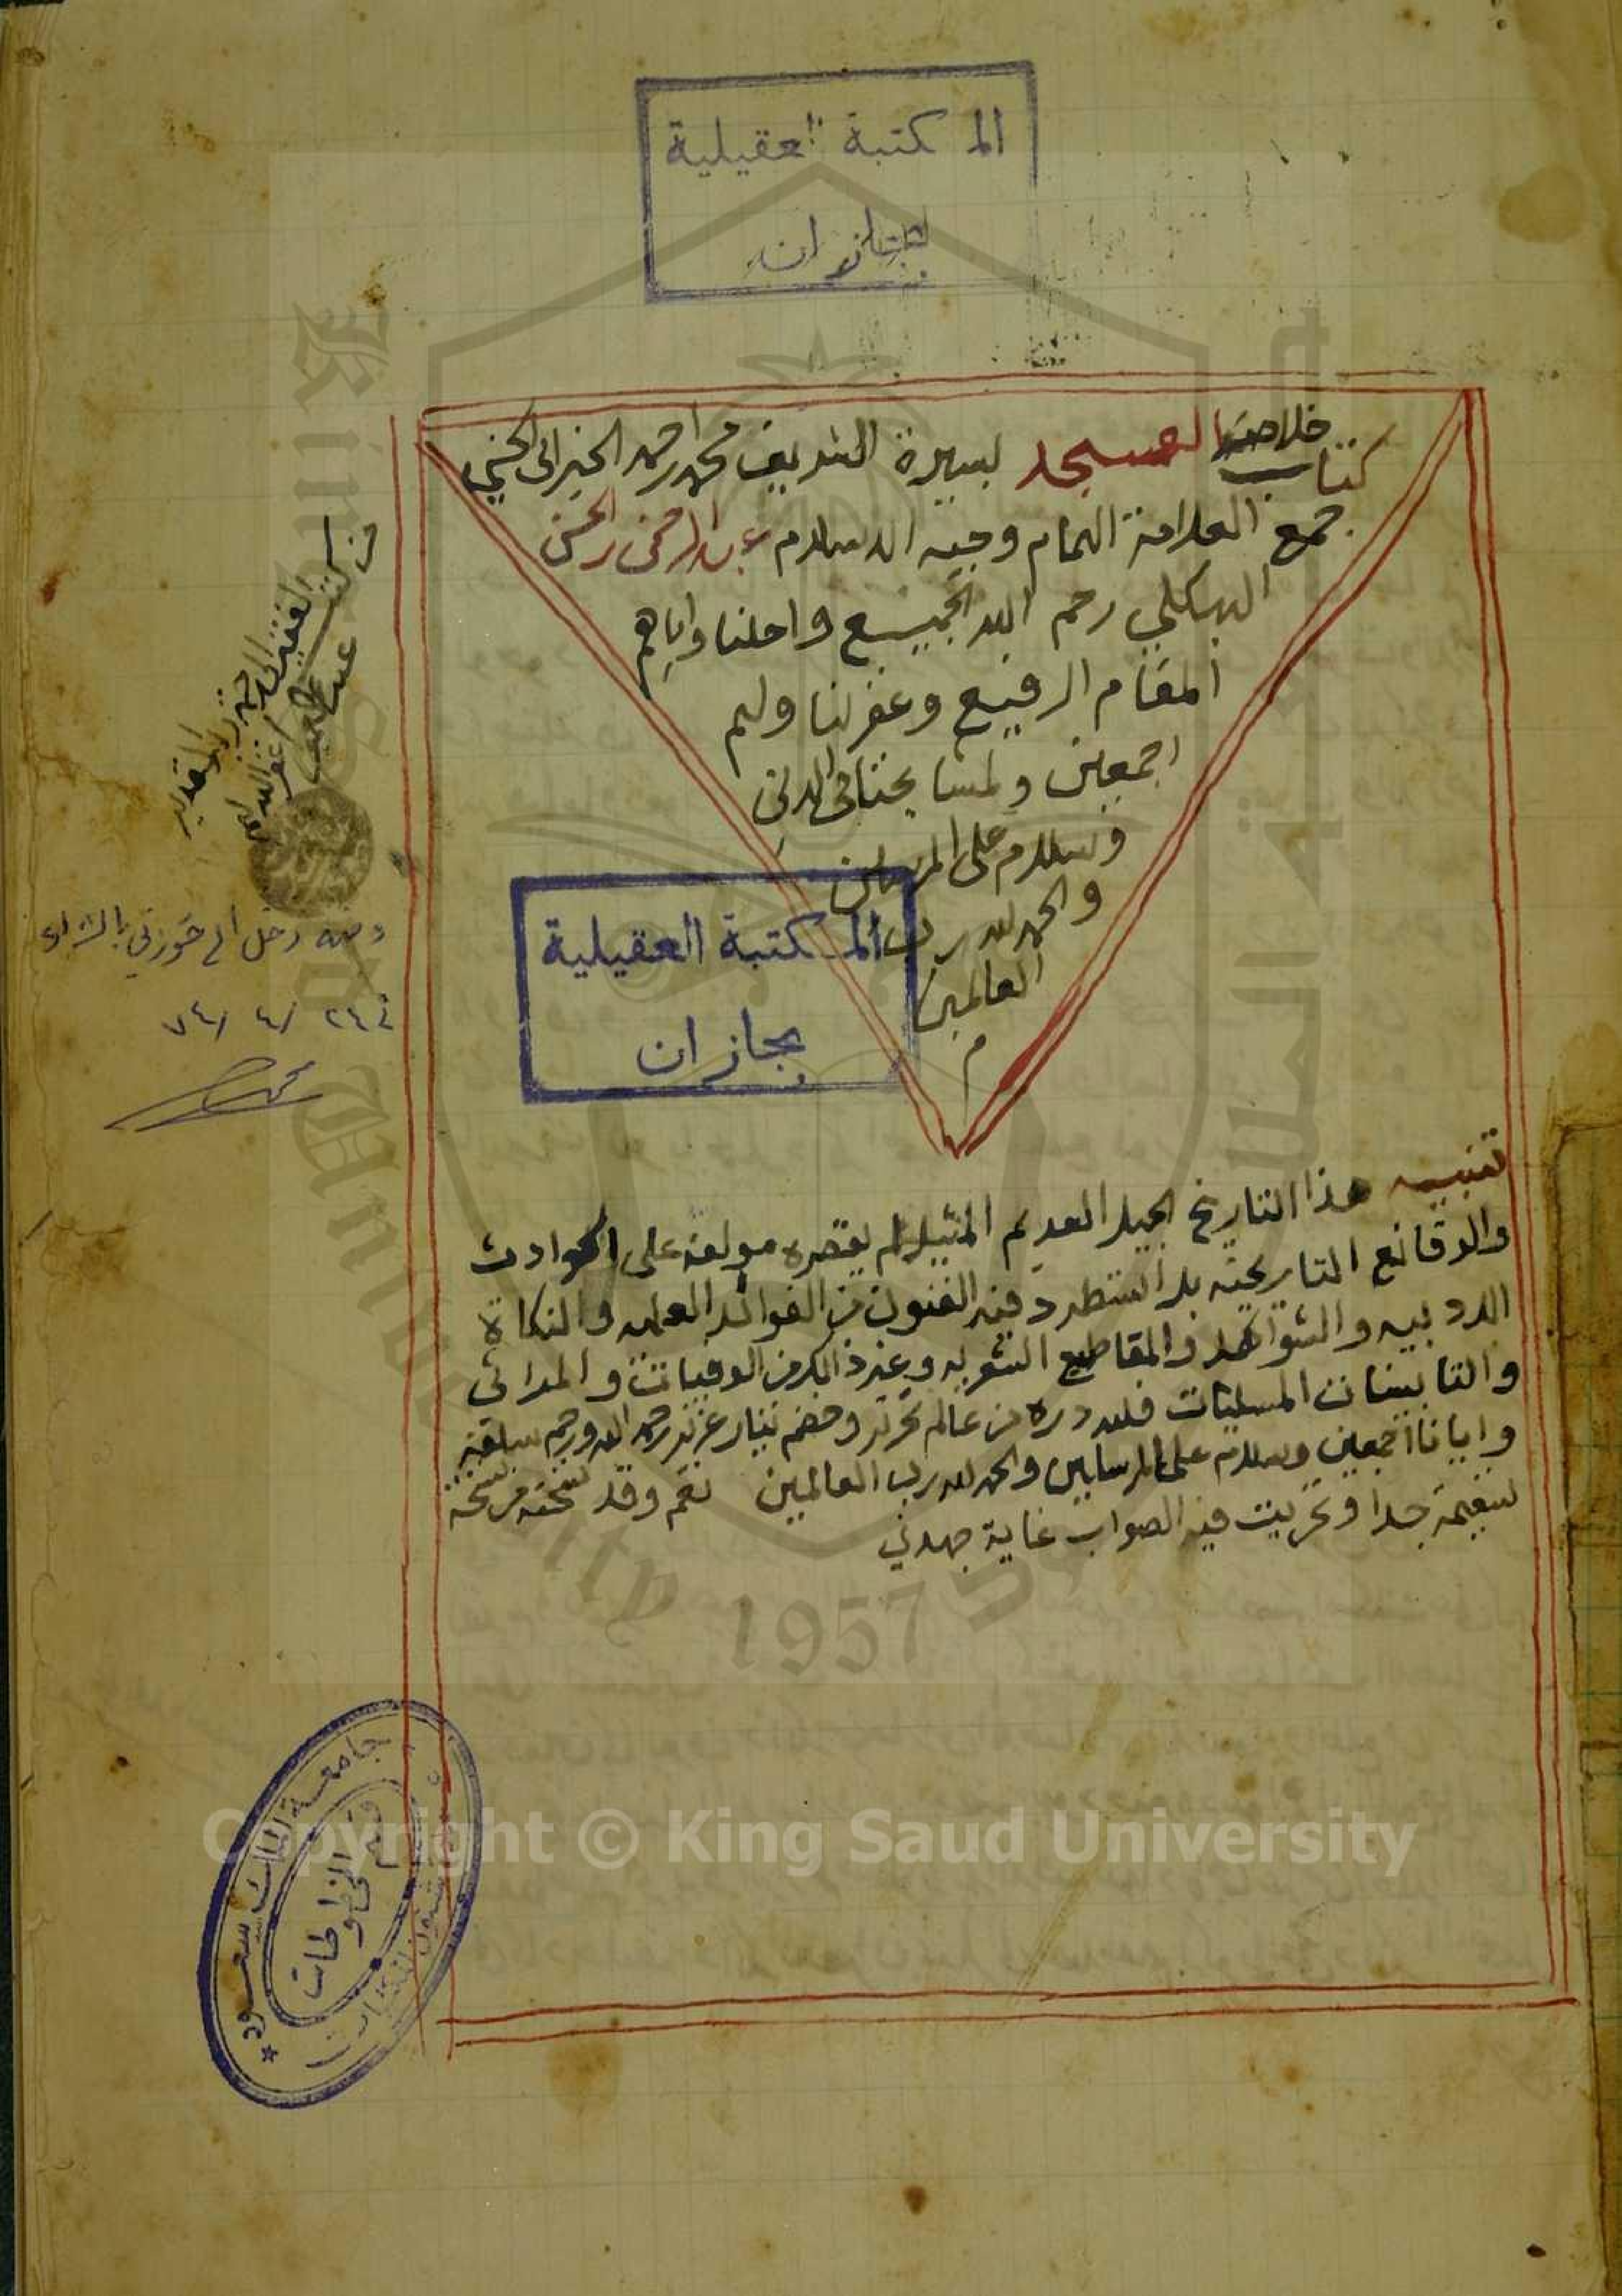 المكتبة العقيلية
بجازان
كتاب خلاصة العسجد لسيرة الشريف محمد احمد الخيراتي الحسني
جمع العلامة الهمام وجيه الاسلام عبدالرحمن الحسن
البهكلي رحم الله الجميع واحلنا واياهم
المقام الرفيع وغفر لنا ولهم
اجمعين ولمشايخنا في الدين
وسلام على المرسلين
والحمد لله رب
العالمين
م
المكتبة العقيلية
بجازان
من كتب
الفقير الى الله
ومنه دخل الى حوزتي بالشراء
في ٢٤ / ٤ / ٧٤
تنبيه هذا التاريخ الجيل العديم المثيل لم يقصره مولفه على الحوادث
والوقائع التاريخية بل استطرد فيه الفنون من الفوائد العلميه والنكاة
الادبيه والشواهد والمقاطيع الشعريه وعند ذالك من الوفيات والمراثي
والتابينات المسليات فلله دره من عالم نحرير وخضم تيار غزير رحمه الله ورحم سلفه
وايانا اجمعين وسلام على المرسلين والحمد لله رب العالمين نعم وقد نسخته من نسخة
سقيمة جدا وتحريت فيه الصواب غاية جهدي
جامعة الملك سعود
قسم المخطوطات
King Saud University
1957
Copyright © King Saud University